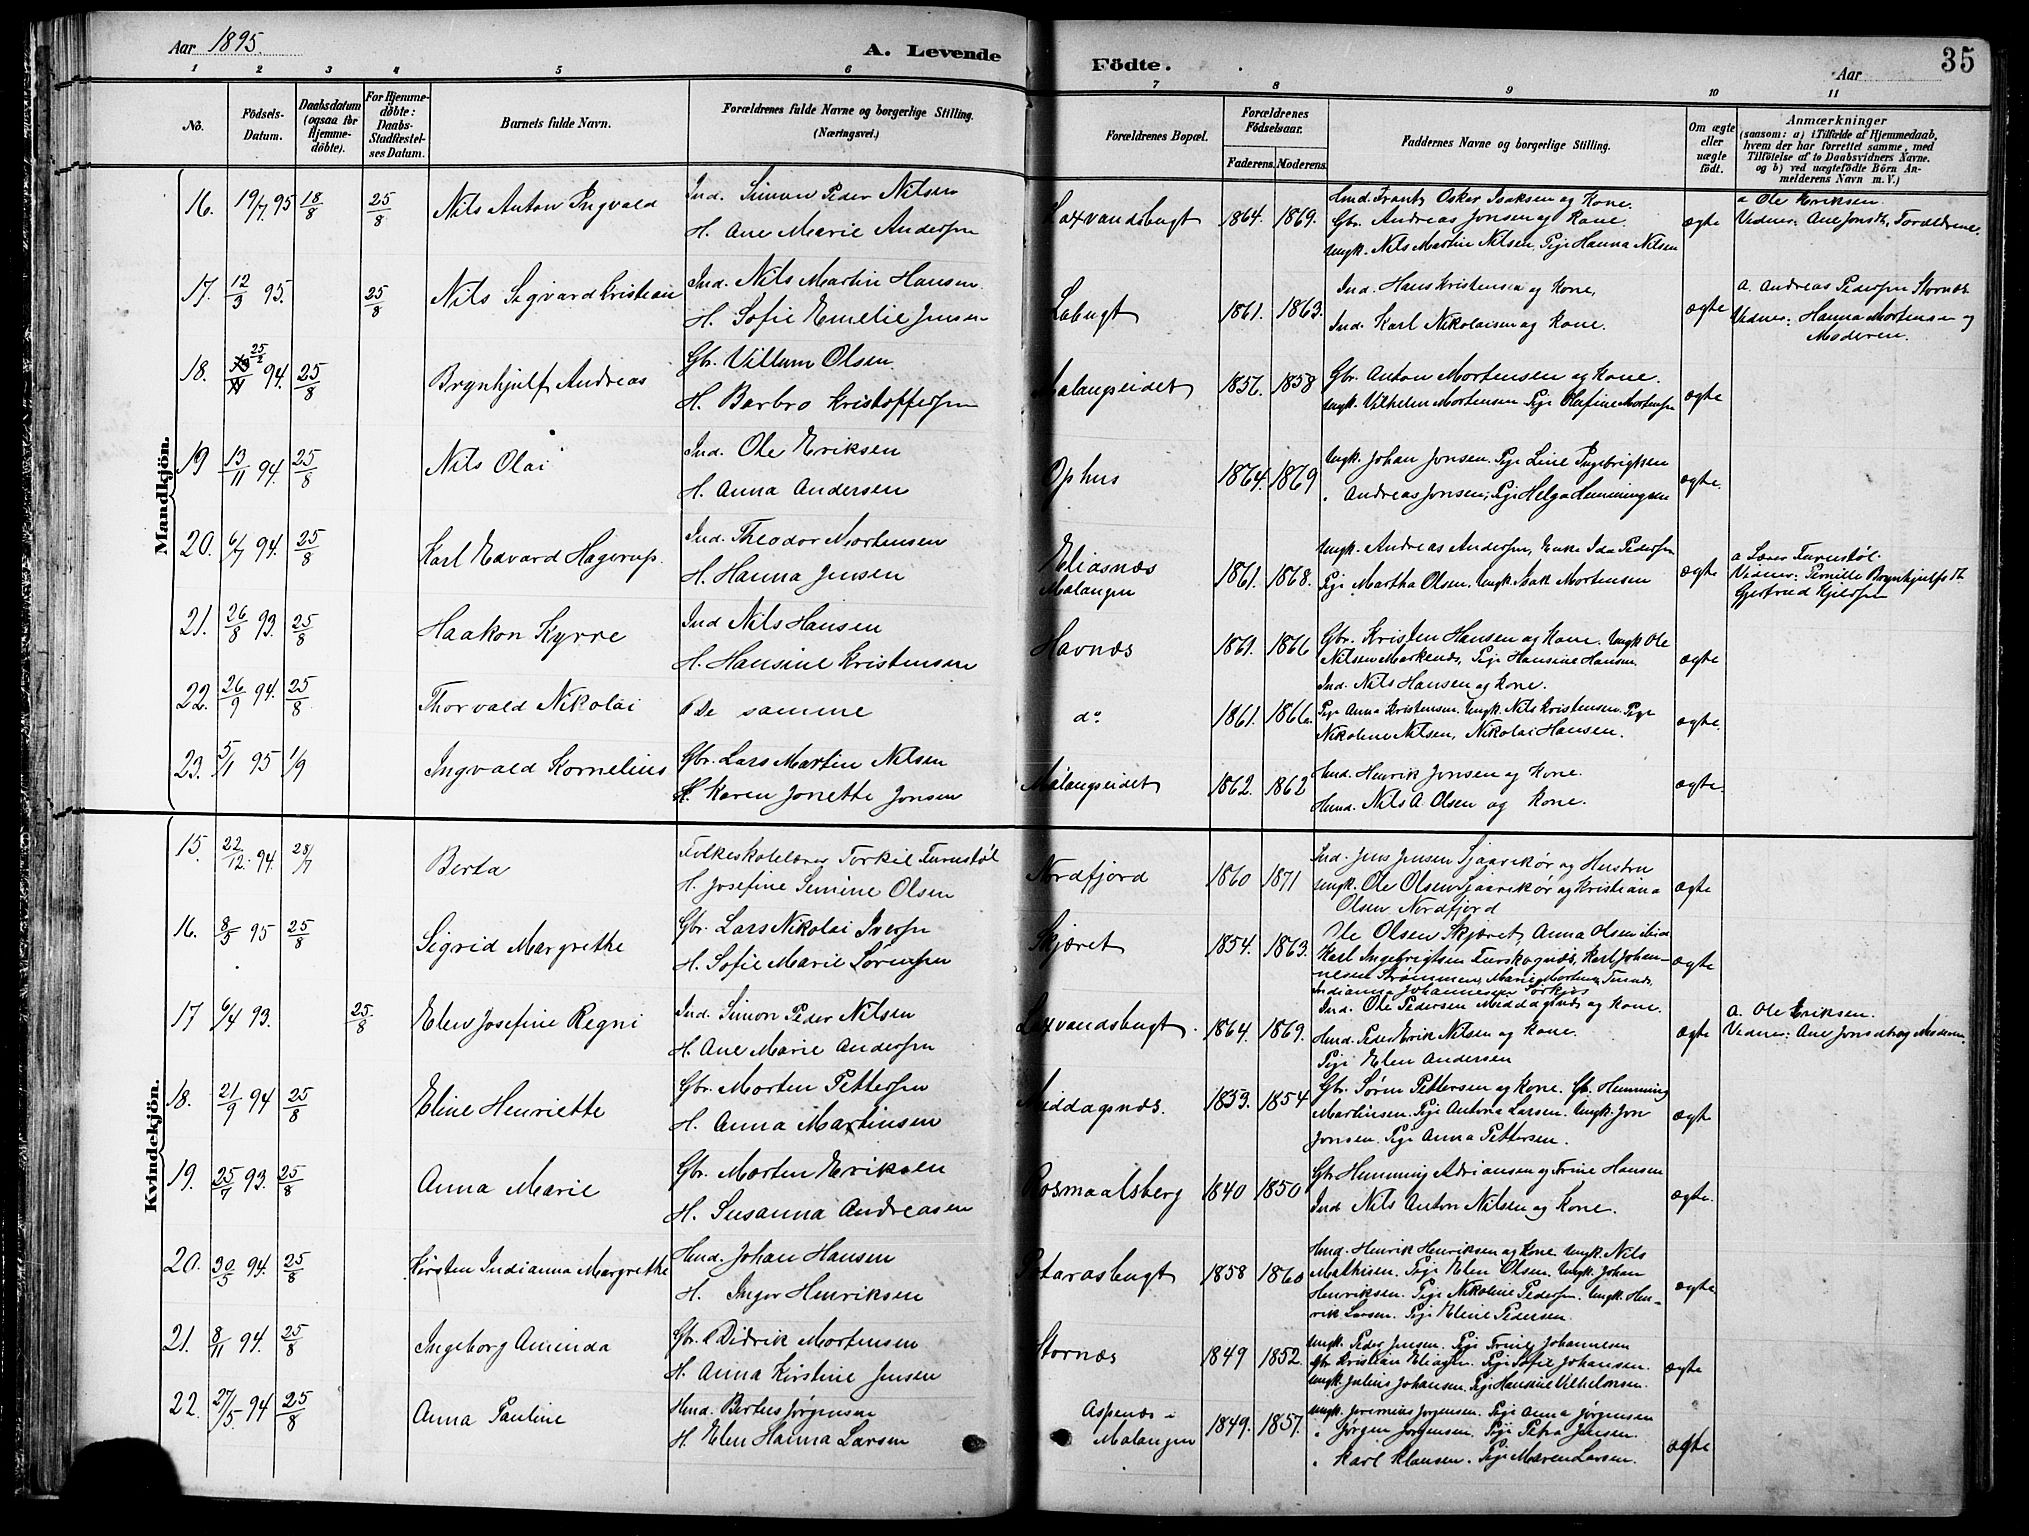 Aar 1895.
A. Levende Födte.
Aar
35
1 2 3 4 5 6 7 8 9 10 11
No.
Födsels-Datum.
Daabsdatum (ogsaa for Hjemme-döbte).
For Hjemme-döbte: Daabs-Stadfæstel-ses Datum.
Barnets fulde Navn.
Forældrenes fulde Navne og borgerlige Stilling. (Næringsvei.)
Forældrenes Bopæl.
Forældrenes Födselsaar.
Faderens. Moderens.
Faddernes Navne og borgerlige Stilling.
Om ægte eller uægte födt.
Anmærkninger
(saasom: a) i Tilfælde af Hjemmedaab, hvem der har forrettet samme, med Tilföielse af to Daabsvidners Navne. og b) ved uægtefödte Börn An-melderens Navn m. V.)
Mandkjön.
16. 19/7 95 18/8 25/8 Nils Anton Ingvald
Ind. Simon Peder Nilsen
H. Ane Marie Andersen
Laxvandsbugt 1864. 1869.
Hmd. Frants Oskar Isaksen og Kone.
Gbr. Andreas Jonsen og Kone.
Ungk. Nils Martin Nilsen, Pige Hanna Nilsen
ægte
a Ole Eriksen.
Vidner: Ane Jonsdt, Forældrene.
17. 12/3 95. 25/8 Nils Sigvard Kristian
Ind. Nils Martin Hansen.
H. Sofie Emelie Jensen
Labugt 1861. 1863.
Ind. Hans Kristensen og Kone,
Ind. Karl Nikolaisen og Kone.
ægte
a. Andreas Pedersen Stornæs
Vidner: Hanna Mortensen og
Moderen.
18. 25/2 94. 25/8 Brynhjulf Andreas
Gbr. Villum Olsen.
H. Barbro Kristoffersen
Malangseidet 1856. 1858
Gbr. Anton Mortensen og Kone.
Ungk. Vilhelm Mortensen Pige Olufine Mortensen
ægte
19 13/11 94. 25/8 Nils Olai
Ind. Ole Eriksen
H. Anna Andersen
Ophus 1864. 1869
Ungk. Johan Jonsen. Pige Line Ingebrigtsen
" Andreas Jonsen; Pige Helga Hemmingsen
ægte.
20. 6/7 94. 25/8 Karl Edvard Hagerup.
Ind. Theodor Mortensen
H. Hanna Jensen
Eliasnæs
Malangen 1861. 1868.
Ungk. Andreas Andersen, Enke Ida Pedersen
Pige Martha Olsen. Ungk. Isak Mortensen
ægte
a Lærer Turustöl.
Vidner: Pernille Brynhjulfsdt
Gjertrud Kjeldsen
21. 26/8 93. 25/8 Haakon Kyrre
Ind Nils Hansen
H. Hansine Kristensen
Havnæs 1861. 1866
Gbr. Kristen Hansen og Kone. Ungk Ole
Nilsen Markenæs, Pige Hansine Hansen.
Ind. Nils Hansen og Kone.
ægte
22. 26/9 94. 25/8 Thorvald Nikolai
De samme
do 1861. 1866.
Pige Anna Kristensen. Ungk. Nils Kristensen. Pige
Nikoline Nilsen, Nikolai Hansen.
ægte.
23. 5/1 95 1/9 Ingvald Kornelius
Gbr. Lars Martin Nilsen
H. Karen Jonette Jonsen
Malangseidet 1862. 1862
Hmd. Henrik Jonsen og Kone.
Hmd. Nils A. Olsen og Kone.
ægte
Kvindekjön.
15. 22/12. 94. 28/7 Berta
Folkeskolelærer Torkil Turustöl
H. Josefine Simine Olsen
Nordfjord 1860 1871
Ind. Jens Jensen Sjaavikør og Hustru
Ungk. Ole Olsen Sjaavikør og Kristiana
Olsen Nordfjord
ægte
16. 8/5 95 25/8 Sigrid Margrethe
Gbr. Lars Nikolai Iversen
H. Sofie Marie Sørensen
Skjæret 1854. 1863.
Ole Olsen Skjæret, Anna Olsen ibid
Karl Ingebrigtsen Furskognæs, Karl Johan-
nesen Strømmen, Marie Mortensen
Indianna Johannesen
ægte
17 6/4 93. 25/8 Elen Josefine Regni
Ind. Simon Peder Nilsen
H. Ane Marie Andersen
Laxvandsbugt. 1864. 1869.
Ind. Ole Pedersen Middagsnæs og Kone.
Hmd. Peder Erik Nilsen og Kone.
Pige Elen Andersen
ægte
a. Ole Eriksen.
Vidner: Ane Jonsdt og Moderen.
18. 21/9 94 25/8 Eline Henriette
Gbr. Morten Pettersen
H. Anna Martinsen
Middagsnæs. 1853. 1854
Gbr. Søren Pettersen og Kone. Gbr. Hemming
Martinsen. Pige Antona Larsen. Ungk. Jon
Jonsen. Pige Anna Pettersen.
ægte
19. 25/7 93. 25/8 Anna Marie
Gbr. Morten Eriksen
H. Susanna Andreasen
Rosmaalsberg 1840 1850
Gbr Hemming Adriansen og Trine Hansen
Ind. Nils Anton Nilsen og Kone.
ægte.
20. 30/5 94. 25/8 Kirsten Indianna Margrethe
Hmd. Johan Hansen
H. Inger Henriksen
Staraasbugt 1858 1860
Hmd. Henrik Henriksen og Kone. Ungk. Nils
Mathisen. Pige Elen Olsen. Ungk. Johan
Henriksen. Pige Nikoline Pedersen. Ungk. Hen-
rik Larsen. Pige Eline Pedersen.
ægte
21. 8/11 94. 25/8 Ingeborg Aminda
Gbr. Didrik Mortensen
H. Anna Kirstine Jensen
Stornæs 1849 1852.
Ungk. Peder Jensen. Pige Trine Johannesen
Gbr Kristian Eliassen. Pige Sofie Johansen.
Ungk. Julius Johansen. Pige Hansine Vilhelmsen.
ægte
22. 27/5 94 25/8 Anna Pauline
Hmd. Bertus Jørgensen
H. Elen Hanna Larsen
Aspenæs i
Malangen 1849. 1857.
Ungk. Jeremias Jørgensen. Pige Anna Jørgensen
" Jørgen Jørgensen. Pige Petra Jensen.
" Karl Klausen. Pige Maren Larsen.
ægte